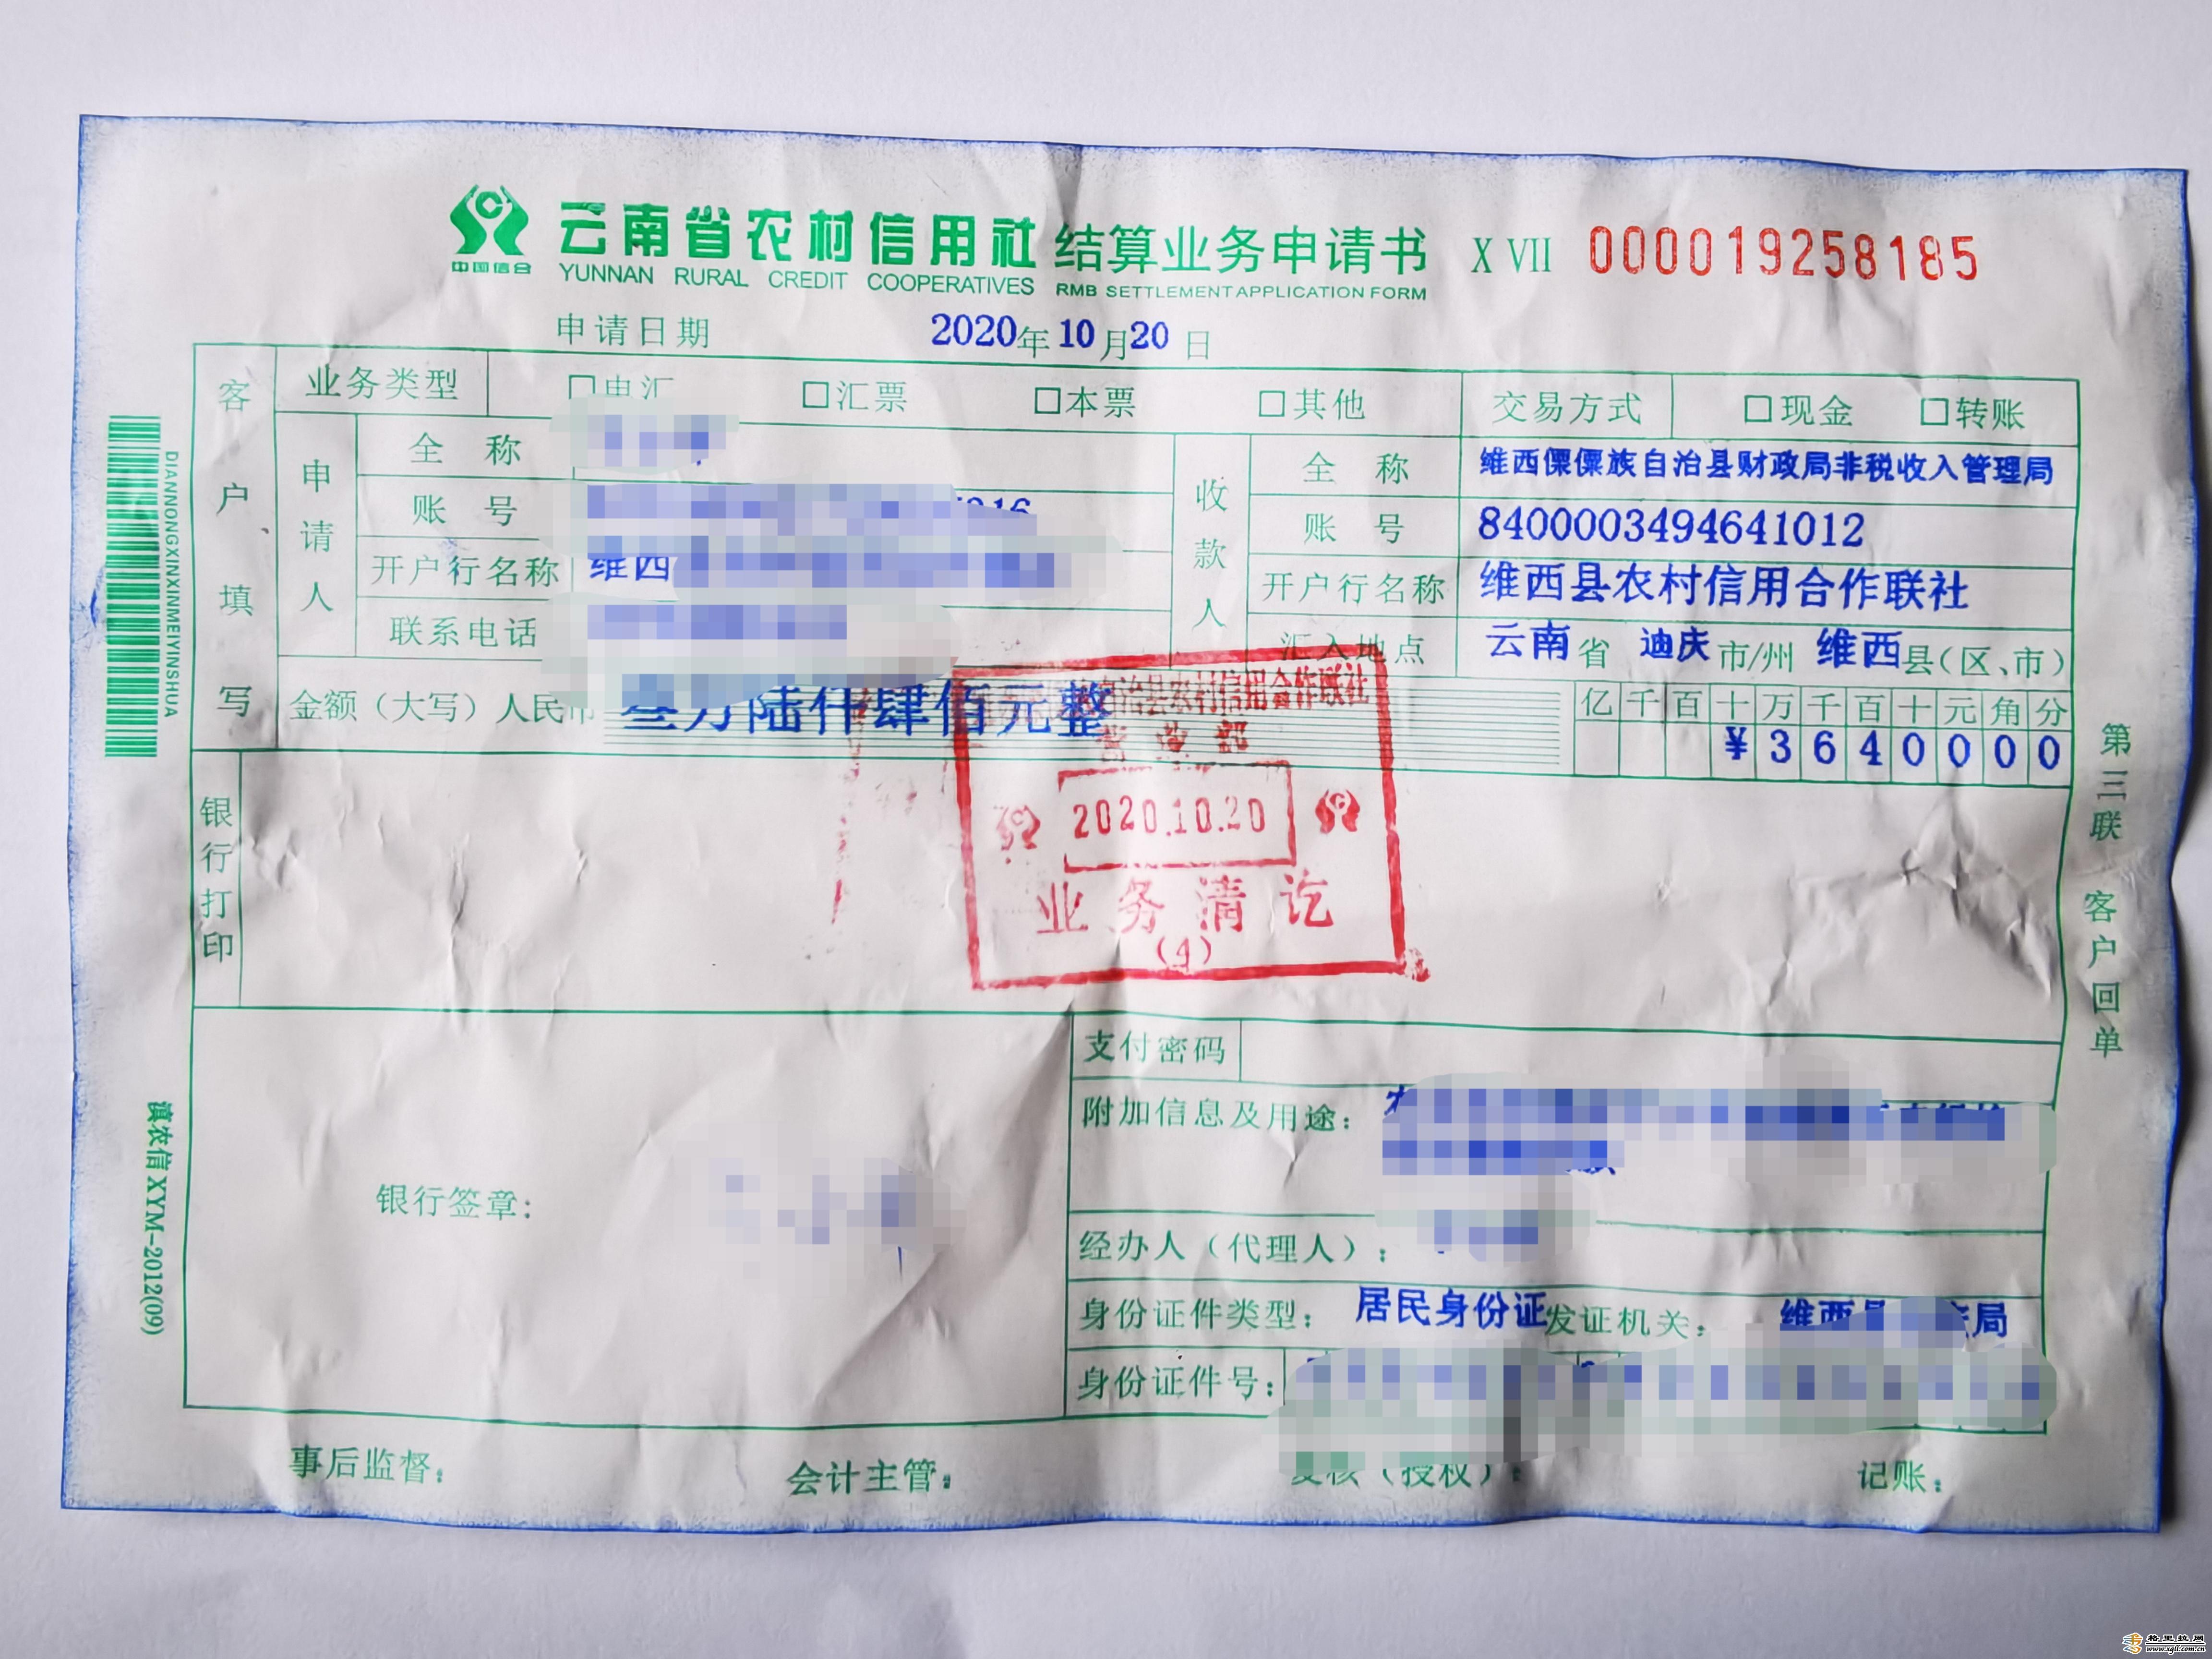 中国信合
云南省农村信用社 结算业务申请书 X VII 000019258185
YUNNAN RURAL CREDIT COOPERATIVES RMB SETTLEMENT APPLICATION FORM
申请日期 2020年10月20日
客户填写
业务类型 □电汇 □汇票 □本票 □其他 交易方式 □现金 □转账
申请人
全称
账号
开户行名称 维西
联系电话
收款人
全称 维西傈僳族自治县财政局非税收入管理局
账号 8400003494641012
开户行名称 维西县农村信用合作联社
汇入地点 云南省 迪庆市/州 维西县(区、市)
金额（大写）人民币 叁万陆仟肆佰元整
亿千百十万千百十元角分
¥3640000
自治县农村信用合作联社
营业部
2020.10.20
业务清讫
(4)
银行打印
支付密码
附加信息及用途：
银行签章：
经办人（代理人）：
身份证件类型： 居民身份证 发证机关： 维西县 局
身份证件号：
事后监督： 会计主管： 复核（授权）： 记账：
DIANNONGXINXINMEIYINSHUA
滇农信 XYM-2012(09)
第三联 客户回单
格里拉网
www.xgll.com.cn